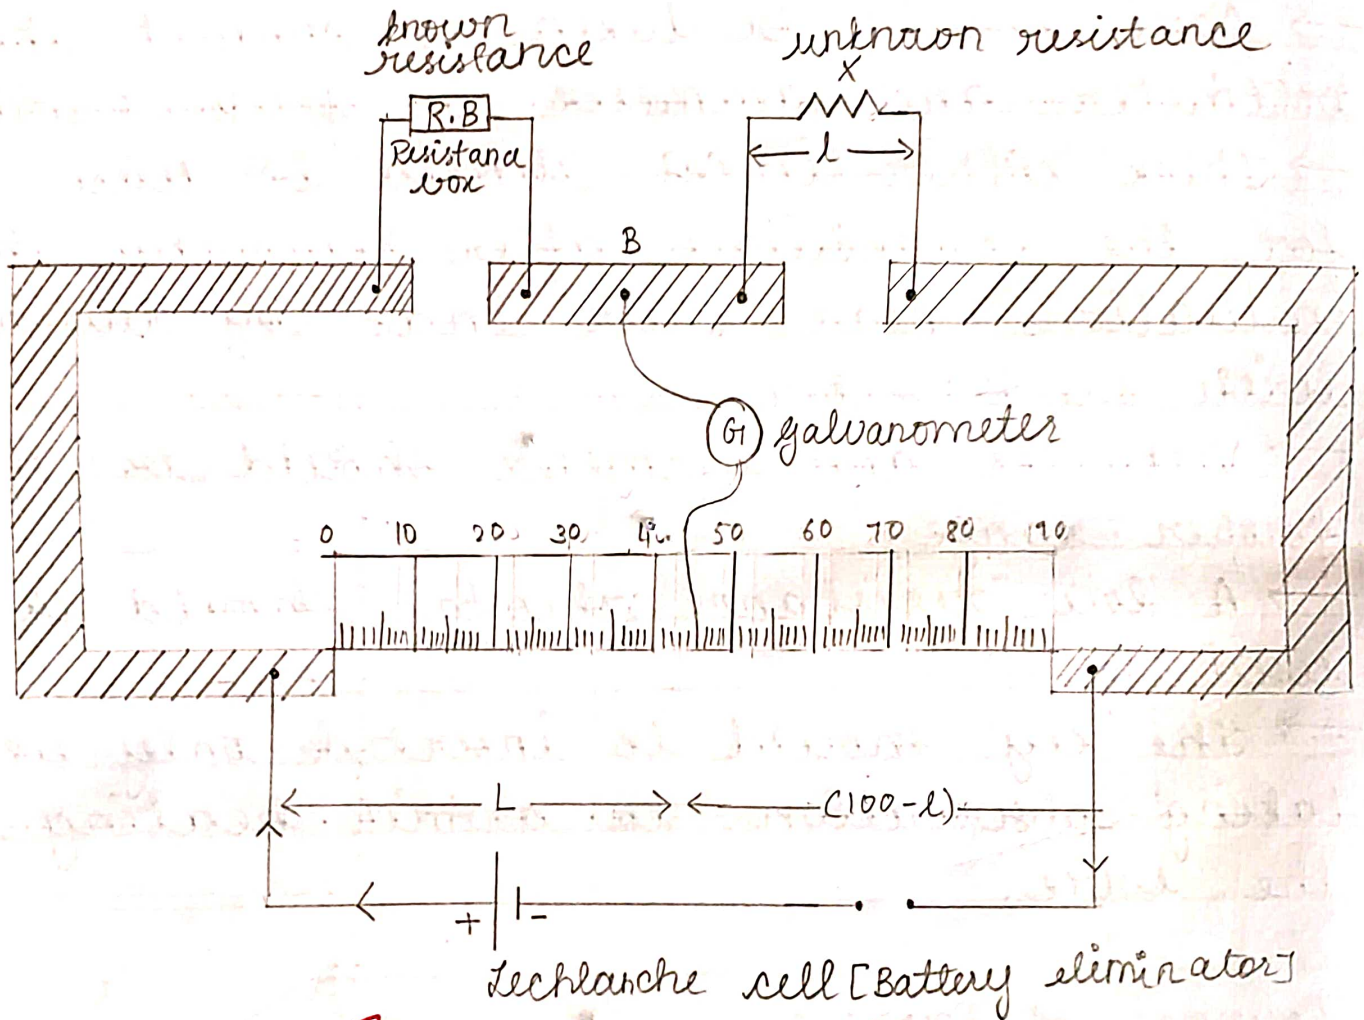 known
resistance
unknown resistance
X
R.B
Resistance
box
l
B
G galvanometer
0 10 20 30 40 50 60 70 80 90
L (100-l)
+ -
Lechlanche cell [Battery eliminator]